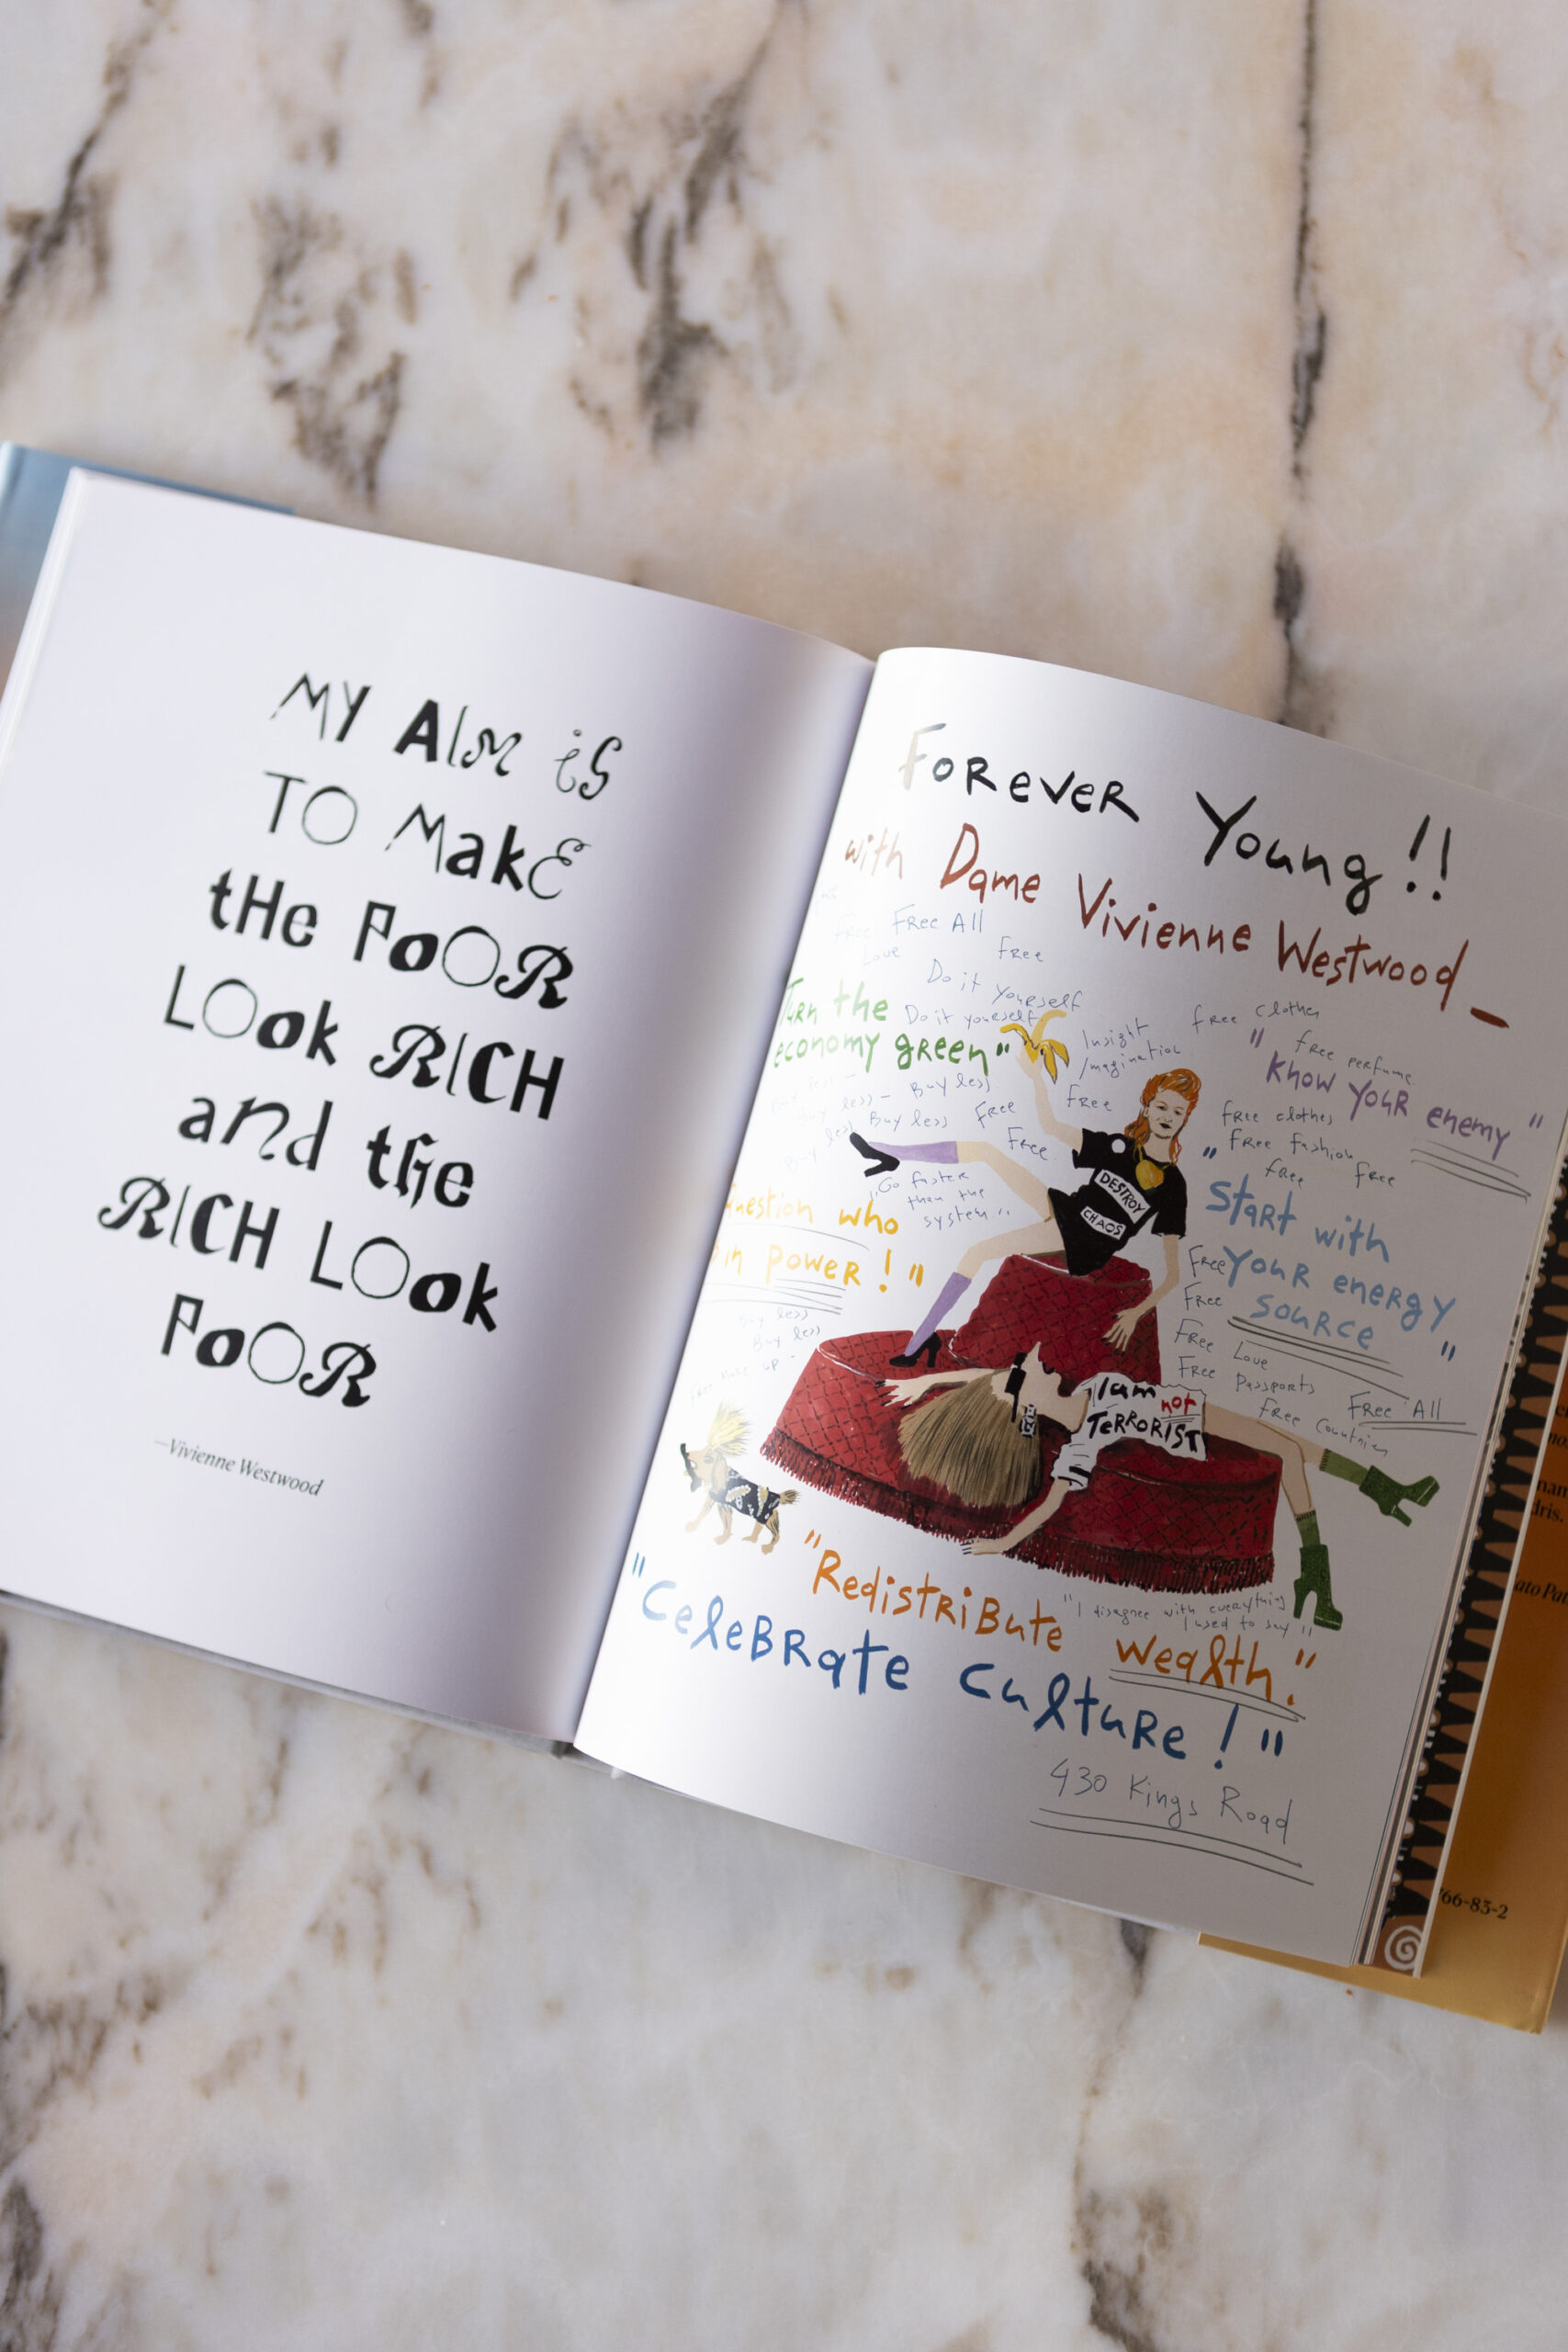 MY AIM iS
TO MakE
tHe PoOR
LOok RICH
and the
RICH LOok
PoOR
—Vivienne Westwood
FOREVER Young!!
with Dame Vivienne Westwood_
Free Free All
Love Free
Do it yourself
Do it yourself
Turn the
economy green"
Insight
Imagination
free clothes
free perfume
"Know YOUR enemy"
Buy less
Buy less - Buy less
Buy less Free Free
Free
free clothes
free fashion
free free
"Go faster
than the
system"
Question who
in POWER!"
DESTROY
CHAOS
"Start with
YOUR energy
source"
Free
Free
Free Love
Free Passports
Free Countries
Free All
Buy less
Buy less
I am not
TERRORIST
"Redistribute wealth."
"I disagree with everything
I used to say"
"CeleBRate culture!"
430 Kings Road
66-83-2